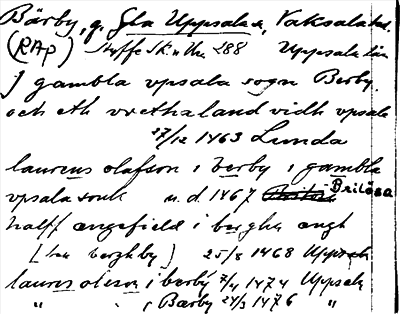 Bärby, g. Gla Uppsala s, Vaksala hd.
(RAP) Styffe Sk. u. Un. 288 Uppsala län
J gambla vpsala sogn Berby.
och eth vrethaland vidh vpsala
17/12 1463 Lunda
laurens olafson i berby i gambla
vpsala sonk u. d. 1467 Britösa
halff angefield i bergha angh
25/8 1468 Uppsala
laures oleson i berby 7/4 1474 Uppsala
" i Bærby 24/3 1476 "